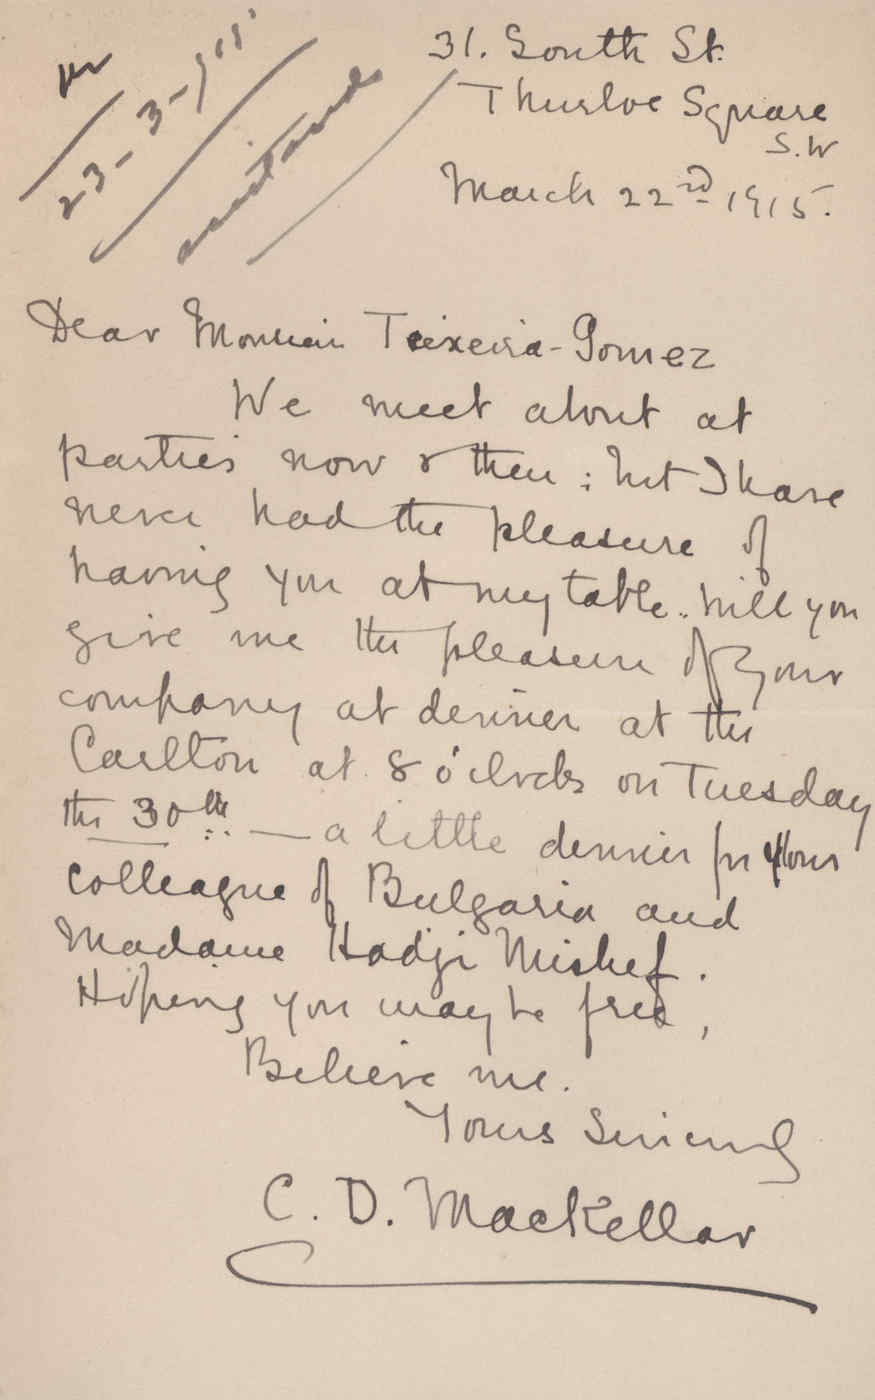 23-3-915
31. South St.
Thurloe Square
S.W
March 22nd 1915.
Dear Monsieur Teixeira-Gomez
We meet about at
parties now & then; but I have
never had the pleasure of
having you at my table. Will you
give me the pleasure of your
company at dinner at the
Carlton at 8 o'clock on Tuesday
the 30th. — a little dinner for your
colleague of Bulgaria and
Madame Hadji Mishef.
Hoping you may be free,
Believe me.
Yours Sincerely
C. D. MacKellar